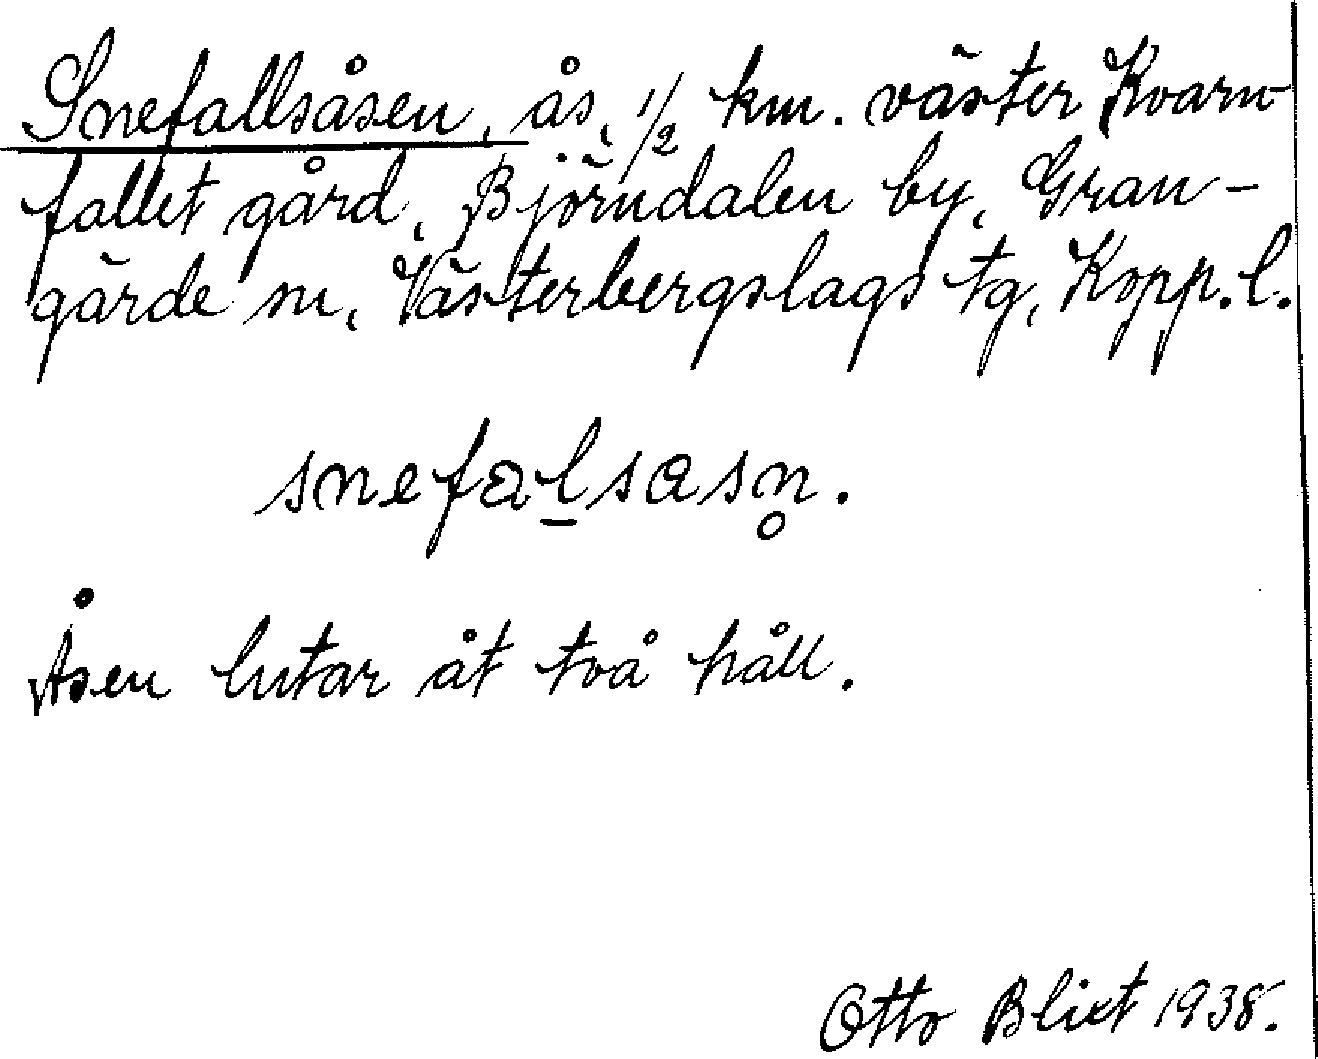 Snefallsåsen, ås, 1/2 km. väster Kvarn-
fallet gård, Björndalen by, Gran-
gärde sn, Västerbergslags tg, Kopp.l.
snefal̠sasn̥.
Åsen lutar åt två håll.
Otto Blixt 1938.